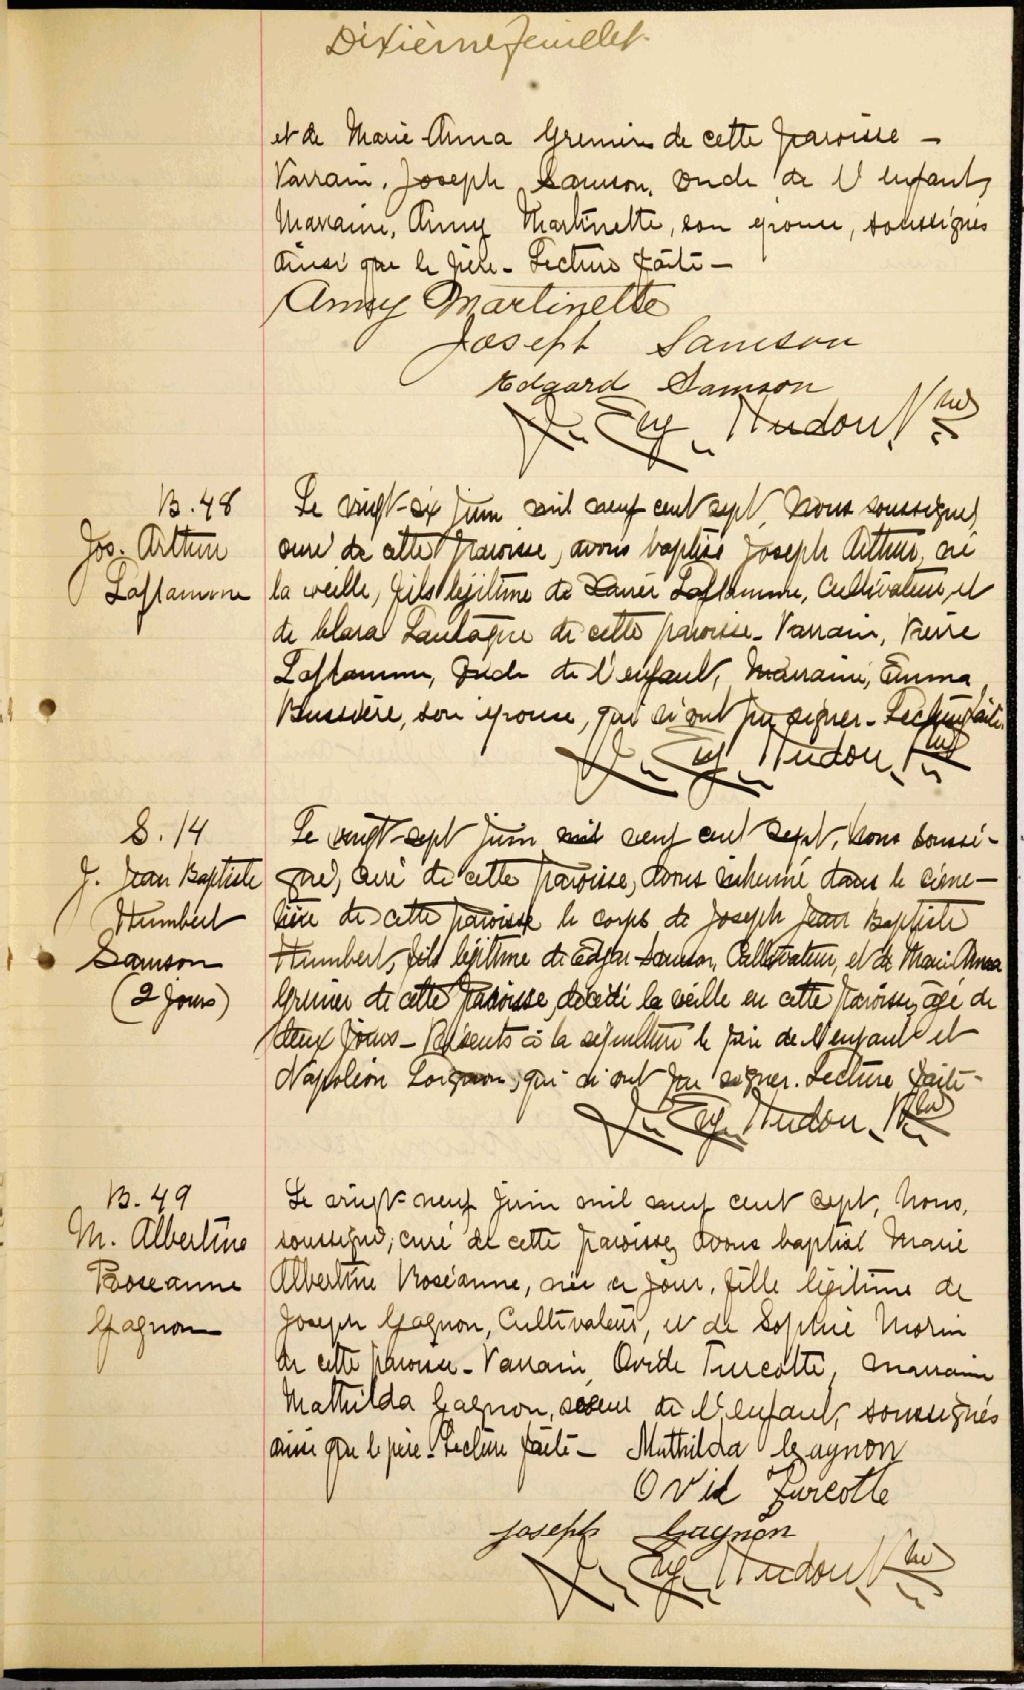 Dixième feuillet
et de Marie Anna Grenier de cette paroisse —
Parrain, Joseph Samson, oncle de l'enfant,
Marraine, Anny Martinette, son épouse, soussignés
ainsi que le père - Lecture faite —
Anny Martinette
Joseph Samson
Edgard Samson
J. Eug. Hudon, Ptre
B. 48
Jos. Arthur
Laflamme
Le vingt-six juin mil neuf cent sept, Nous soussigné,
curé de cette paroisse, avons baptisé Joseph Arthur, né
la veille, fils légitime de Laflamme, Cultivateur, et
de Clara de cette paroisse - Parrain, Pierre
Laflamme, oncle de l'enfant, Marraine, Emma
Bussière, son épouse, qui n'ont pu signer - Lecture faite.
J. Eug. Hudon, Ptre
S. 14
J. Jean Baptiste
Humbert
Samson
(2 jours)
Le vingt-sept juin mil neuf cent sept, Nous soussi-
gné, curé de cette paroisse, avons inhumé dans le cime-
tière de cette paroisse le corps de Joseph Jean Baptiste
Humbert, fils légitime de Edgar Samson, Cultivateur, et de Marie Anna
Grenier de cette paroisse, décédé la veille en cette paroisse, âgé de
deux jours - Présents à la sépulture le père de l'enfant et
Napoléon, qui n'ont pu signer. Lecture faite -
J. Eug. Hudon, Ptre
B. 49
M. Albertine
Roseanne
Gagnon
Le vingt-neuf juin mil neuf cent sept, Nous,
soussigné, curé de cette paroisse, avons baptisé Marie
Albertine Roséanne, née ce jour, fille légitime de
Joseph Gagnon, Cultivateur, et de Sophie Morin
de cette paroisse - Parrain, Ovide Turcotte, marraine
Mathilda Gagnon, soeur de l'enfant, soussignés
ainsi que le père - Lecture faite - Mathilda Gagnon
Ovid Turcotte
Joseph Gagnon
J. Eug. Hudon, Ptre